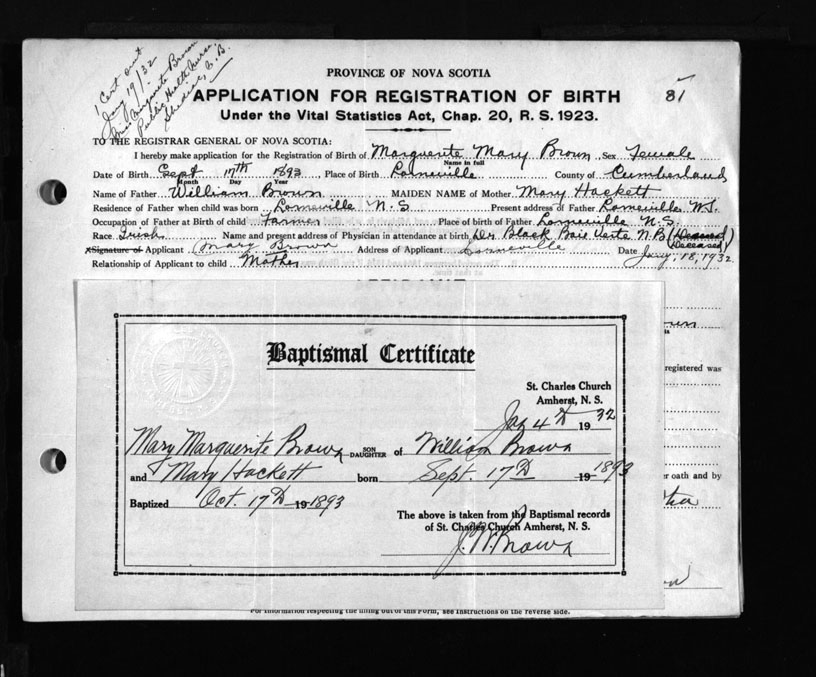 1 Cert out
Jany 19/32
Miss Marguerite Brown
Public Health Nurse
Shediac, N.B.
PROVINCE OF NOVA SCOTIA
APPLICATION FOR REGISTRATION OF BIRTH
81
Under the Vital Statistics Act, Chap. 20, R. S. 1923.
TO THE REGISTRAR GENERAL OF NOVA SCOTIA:
I hereby make application for the Registration of Birth of Marguerite Mary Brown Sex Female
Name in full
Date of Birth Sept 17th 1893 Place of Birth Lorneville County of Cumberland
Month Day Year
Name of Father William Brown MAIDEN NAME of Mother Mary Hackett
Residence of Father when child was born Lorneville N.S. Present address of Father Lorneville N.S.
Occupation of Father at Birth of child Farmer Place of birth of Father Lorneville N.S.
Race Irish Name and present address of Physician in attendance at birth Dr Black Baie Verte N.B (Deceased)
(Deceased)
Signature of Applicant Mary Brown Address of Applicant Lorneville Date Jany. 18, 1932
Relationship of Applicant to child Mother
registered was
er oath and by
Baptismal Certificate
St. Charles Church
Amherst, N. S.
Jan 4th 1932
Mary Marguerite Brown SON DAUGHTER of William Brown
and Mary Hackett born Sept. 17th 19 1893
Baptized Oct. 17th 19 1893
The above is taken from the Baptismal records
of St. Charles Church Amherst, N. S.
J. W. Brown
For information respecting the filling out of this Form, see Instructions on the reverse side.